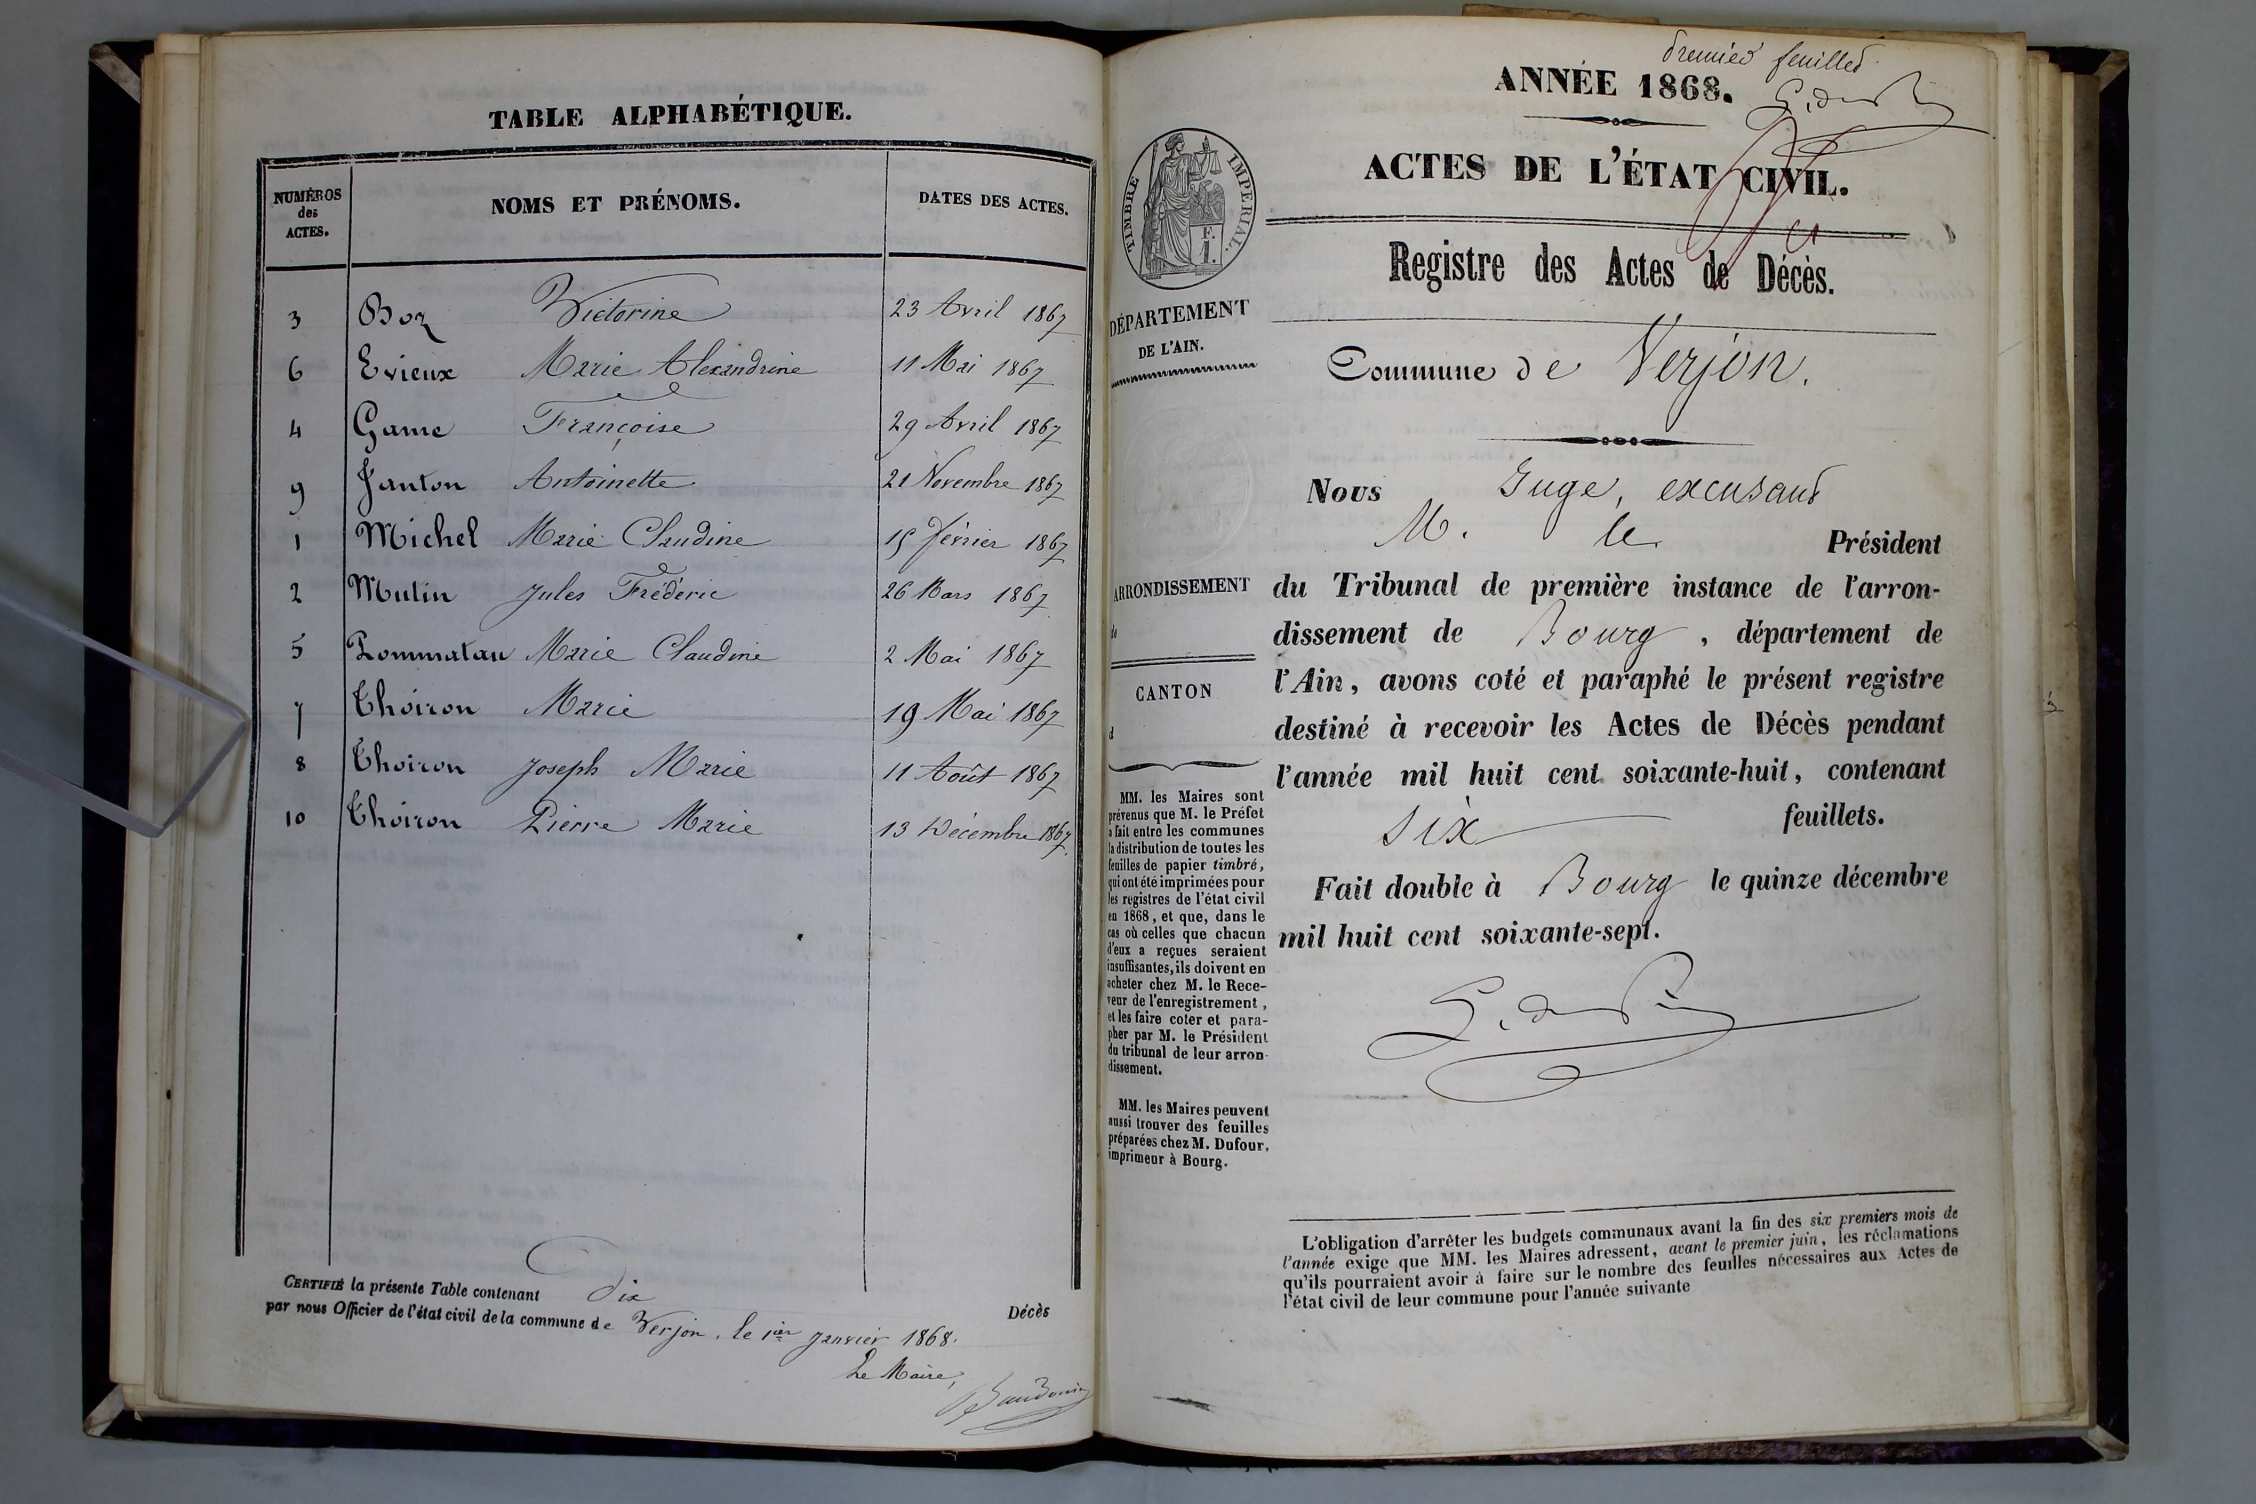 TABLE ALPHABÉTIQUE.
NUMÉROS des ACTES. NOMS ET PRÉNOMS. DATES DES ACTES.
3 Boz Victorine 23 Avril 1867
6 Evieux Marie Alexandrine 11 Mai 1867
4 Game Françoise 29 Avril 1867
9 Janton Antoinette 21 Novembre 1867
1 Michel Marie Claudine 15 février 1867
2 Mutin Jules Frédéric 26 Mars 1867
5 Pommatau Marie Claudine 2 Mai 1867
7 Thoiron Marie 19 Mai 1867
8 Thoiron Joseph Marie 11 Août 1867
10 Thoiron Pierre Marie 13 Décembre 1867.
CERTIFIÉ la présente Table contenant Dix Décès
par nous Officier de l'état civil de la commune de Verjon, le 1ier Janvier 1868.
Le Maire,
premier feuillet
ANNÉE 1868.
ACTES DE L'ÉTAT CIVIL.
TIMBRE IMPÉRIAL.
F.
1.
Registre des Actes de Décès.
DÉPARTEMENT
DE L'AIN.
Commune de Verjon.
Nous Juge, excusant
M. le Président
ARRONDISSEMENT
de
du Tribunal de première instance de l'arron-
dissement de Bourg, département de
CANTON
d
l'Ain, avons coté et paraphé le présent registre
destiné à recevoir les Actes de Décès pendant
l'année mil huit cent soixante-huit, contenant
six feuillets.
Fait double à Bourg le quinze décembre
mil huit cent soixante-sept.
MM. les Maires sont
prévenus que M. le Préfet
a fait entre les communes
la distribution de toutes les
feuilles de papier timbré,
qui ont été imprimées pour
les registres de l'état civil
en 1868, et que, dans le
cas où celles que chacun
d'eux a reçues seraient
insuffisantes, ils doivent en
acheter chez M. le Rece-
veur de l'enregistrement,
et les faire coter et para-
pher par M. le Président
du tribunal de leur arron-
dissement.
MM. les Maires peuvent
aussi trouver des feuilles
préparées chez M. Dufour,
imprimeur à Bourg.
L'obligation d'arrêter les budgets communaux avant la fin des six premiers mois de
l'année exige que MM. les Maires adressent, avant le premier juin, les réclamations
qu'ils pourraient avoir à faire sur le nombre des feuilles nécessaires aux Actes de
l'état civil de leur commune pour l'année suivante